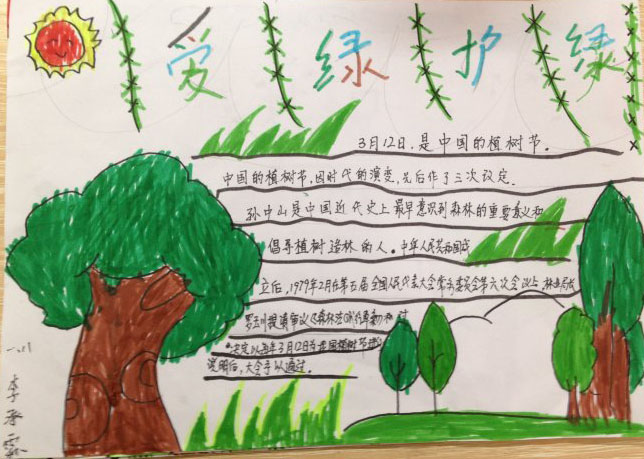 爱绿护绿
3月12日,是中国的植树节。
中国的植树节,因时代的演变,先后作了三次议定。
孙中山是中国近代史上最早意识到森林的重要意义和
倡导植树造林的人。中华人民共和国成
立后,1979年2月份第五届全国人民代表大会常务委员会第六次会议上,林业局
罗玉川提请审议《森林法
决定以每年3月12日为
说明后,大会予以通过。
李承霖